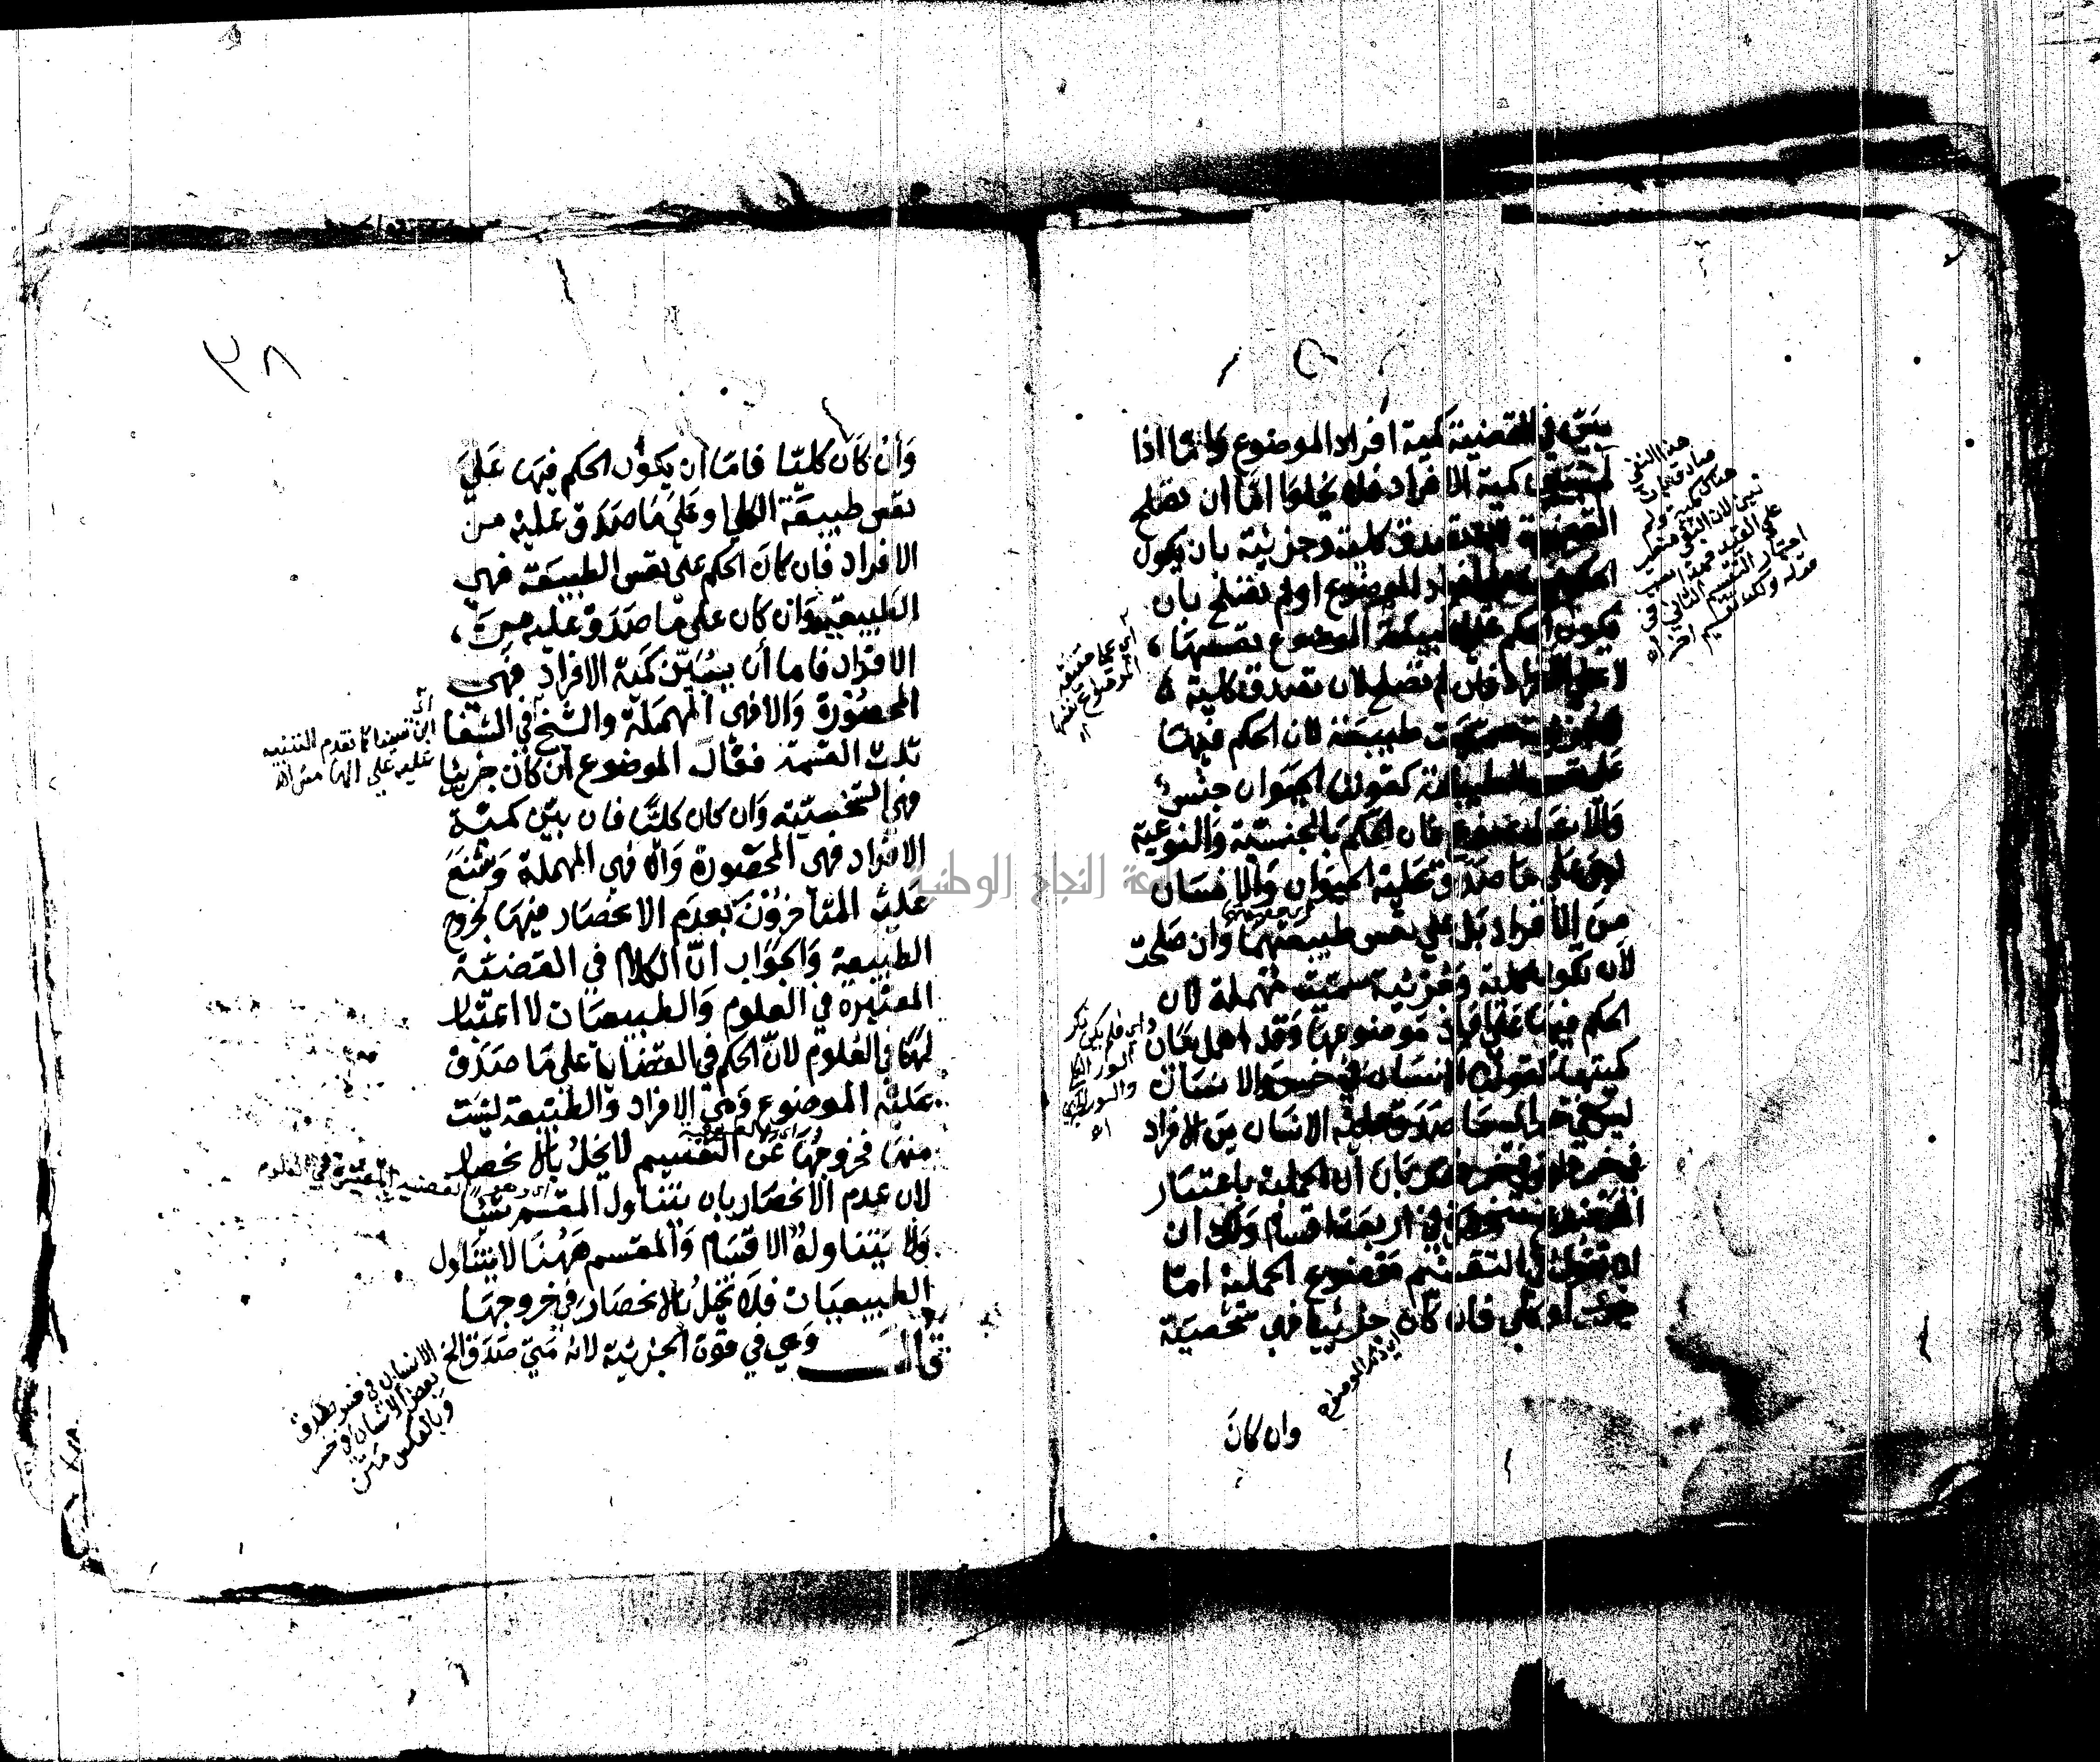 يبيّن في القضية كمية افراد الموضوع وامّا اذا
لم تبيّن كمية الافراد فلا يخلوا امّا ان تصلح
القضية لان تصدق كلية وجزئية بان يكون
الحكم فيها على افراد الموضوع او لم تصلح بان
يكون الحكم على طبيعة الموضوع نفسها
لا على الافراد فان لم تصلح لان تصدق كلية
وجزئية سميت طبيعة لان الحكم فيها
على نفس الطبيعة كقولنا الحيوان جنس
والانسان نوع فان الحكم بالجنسية والنوعية
ليس على ما صدق عليه الحيوان والانسان
من الافراد بل على نفس طبيعتهما وان صلحت
لان تكون كلية وجزئية سميت مهملة لان
الحكم فيها على افراد موضوعها وقد اهمل بيان
كميتها كقولنا الانسان في خسر والانسان
ليس في خسر اي ما صدق عليه الانسان من الافراد
في خسر وليس في خسر فقد بان ان الحملية باعتبار
الموضوع منحصرة في اربعة اقسام ولك ان
تقول في التقسيم موضوع الحملية امّا
جزئي او كلي فان كان جزئيا فهي شخصية
وان كان
هذا النفي
صادق بان
هناك كمية ولم
تبين لان النفي
اي فلم يكن ذكر
السور الكلي
والسور الجزئي
اه
اي ذلك الموضوع
٣٨
وان كان كليّا فامّا ان يكون الحكم فيها على
نفس طبيعة الكلي او على ما صدق عليه من
الافراد فان كان الحكم على نفس الطبيعة فهي
الطبيعية وان كان على ما صدق عليه من
الافراد فاما ان يبيّن كمية الافراد فهي
المحصورة والا فهي المهملة والشيخ في الشفا
ثلث القسمة فقال الموضوع ان كان جزئيا
فهي الشخصية وان كان كليّا فان بيّن كمية
الافراد فهي المحصورة والا فهي المهملة وشنع
عليه المتاخرون بعدم الانحصار فيها لخروج
الطبيعية والجواب انّ الكلام في القضية
المعتبرة في العلوم والطبيعيات لا اعتبار
لها في العلوم لانّ الحكم في القضايا على ما صدق
عليه الموضوع وهي الافراد والطبيعة ليست
منها فخروجها عن التقسيم لا يخل بالانحصار
لان عدم الانحصار بان يتناول المقسم شيئا
ولا يتناوله الاقسام والمقسم ههنا لا يتناول
الطبيعيات فلا تخل بالانحصار في خروجها
قال وهي في قوة الجزئية لانه متى صدق الخ
اي
ابن سينا كما تقدم التنبيه
عليه
اي وهو القضية المعتبرة في العلوم
الانسان في خسر صدق
بعض الانسان في خسر
وبالعكس متن
جامعة النجاح الوطنية